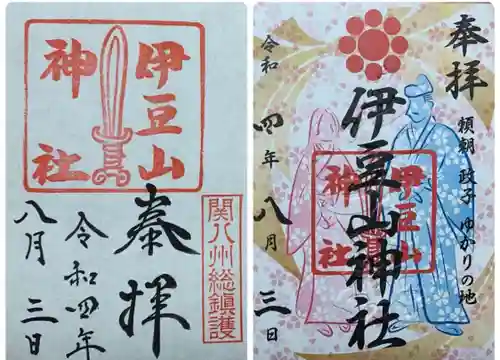 伊豆山
神社
奉拝
関八州総鎮護
令和四年
八月三日
奉拝
頼朝 政子 ゆかりの地
伊豆山神社
伊豆山
神社
令和四年八月三日